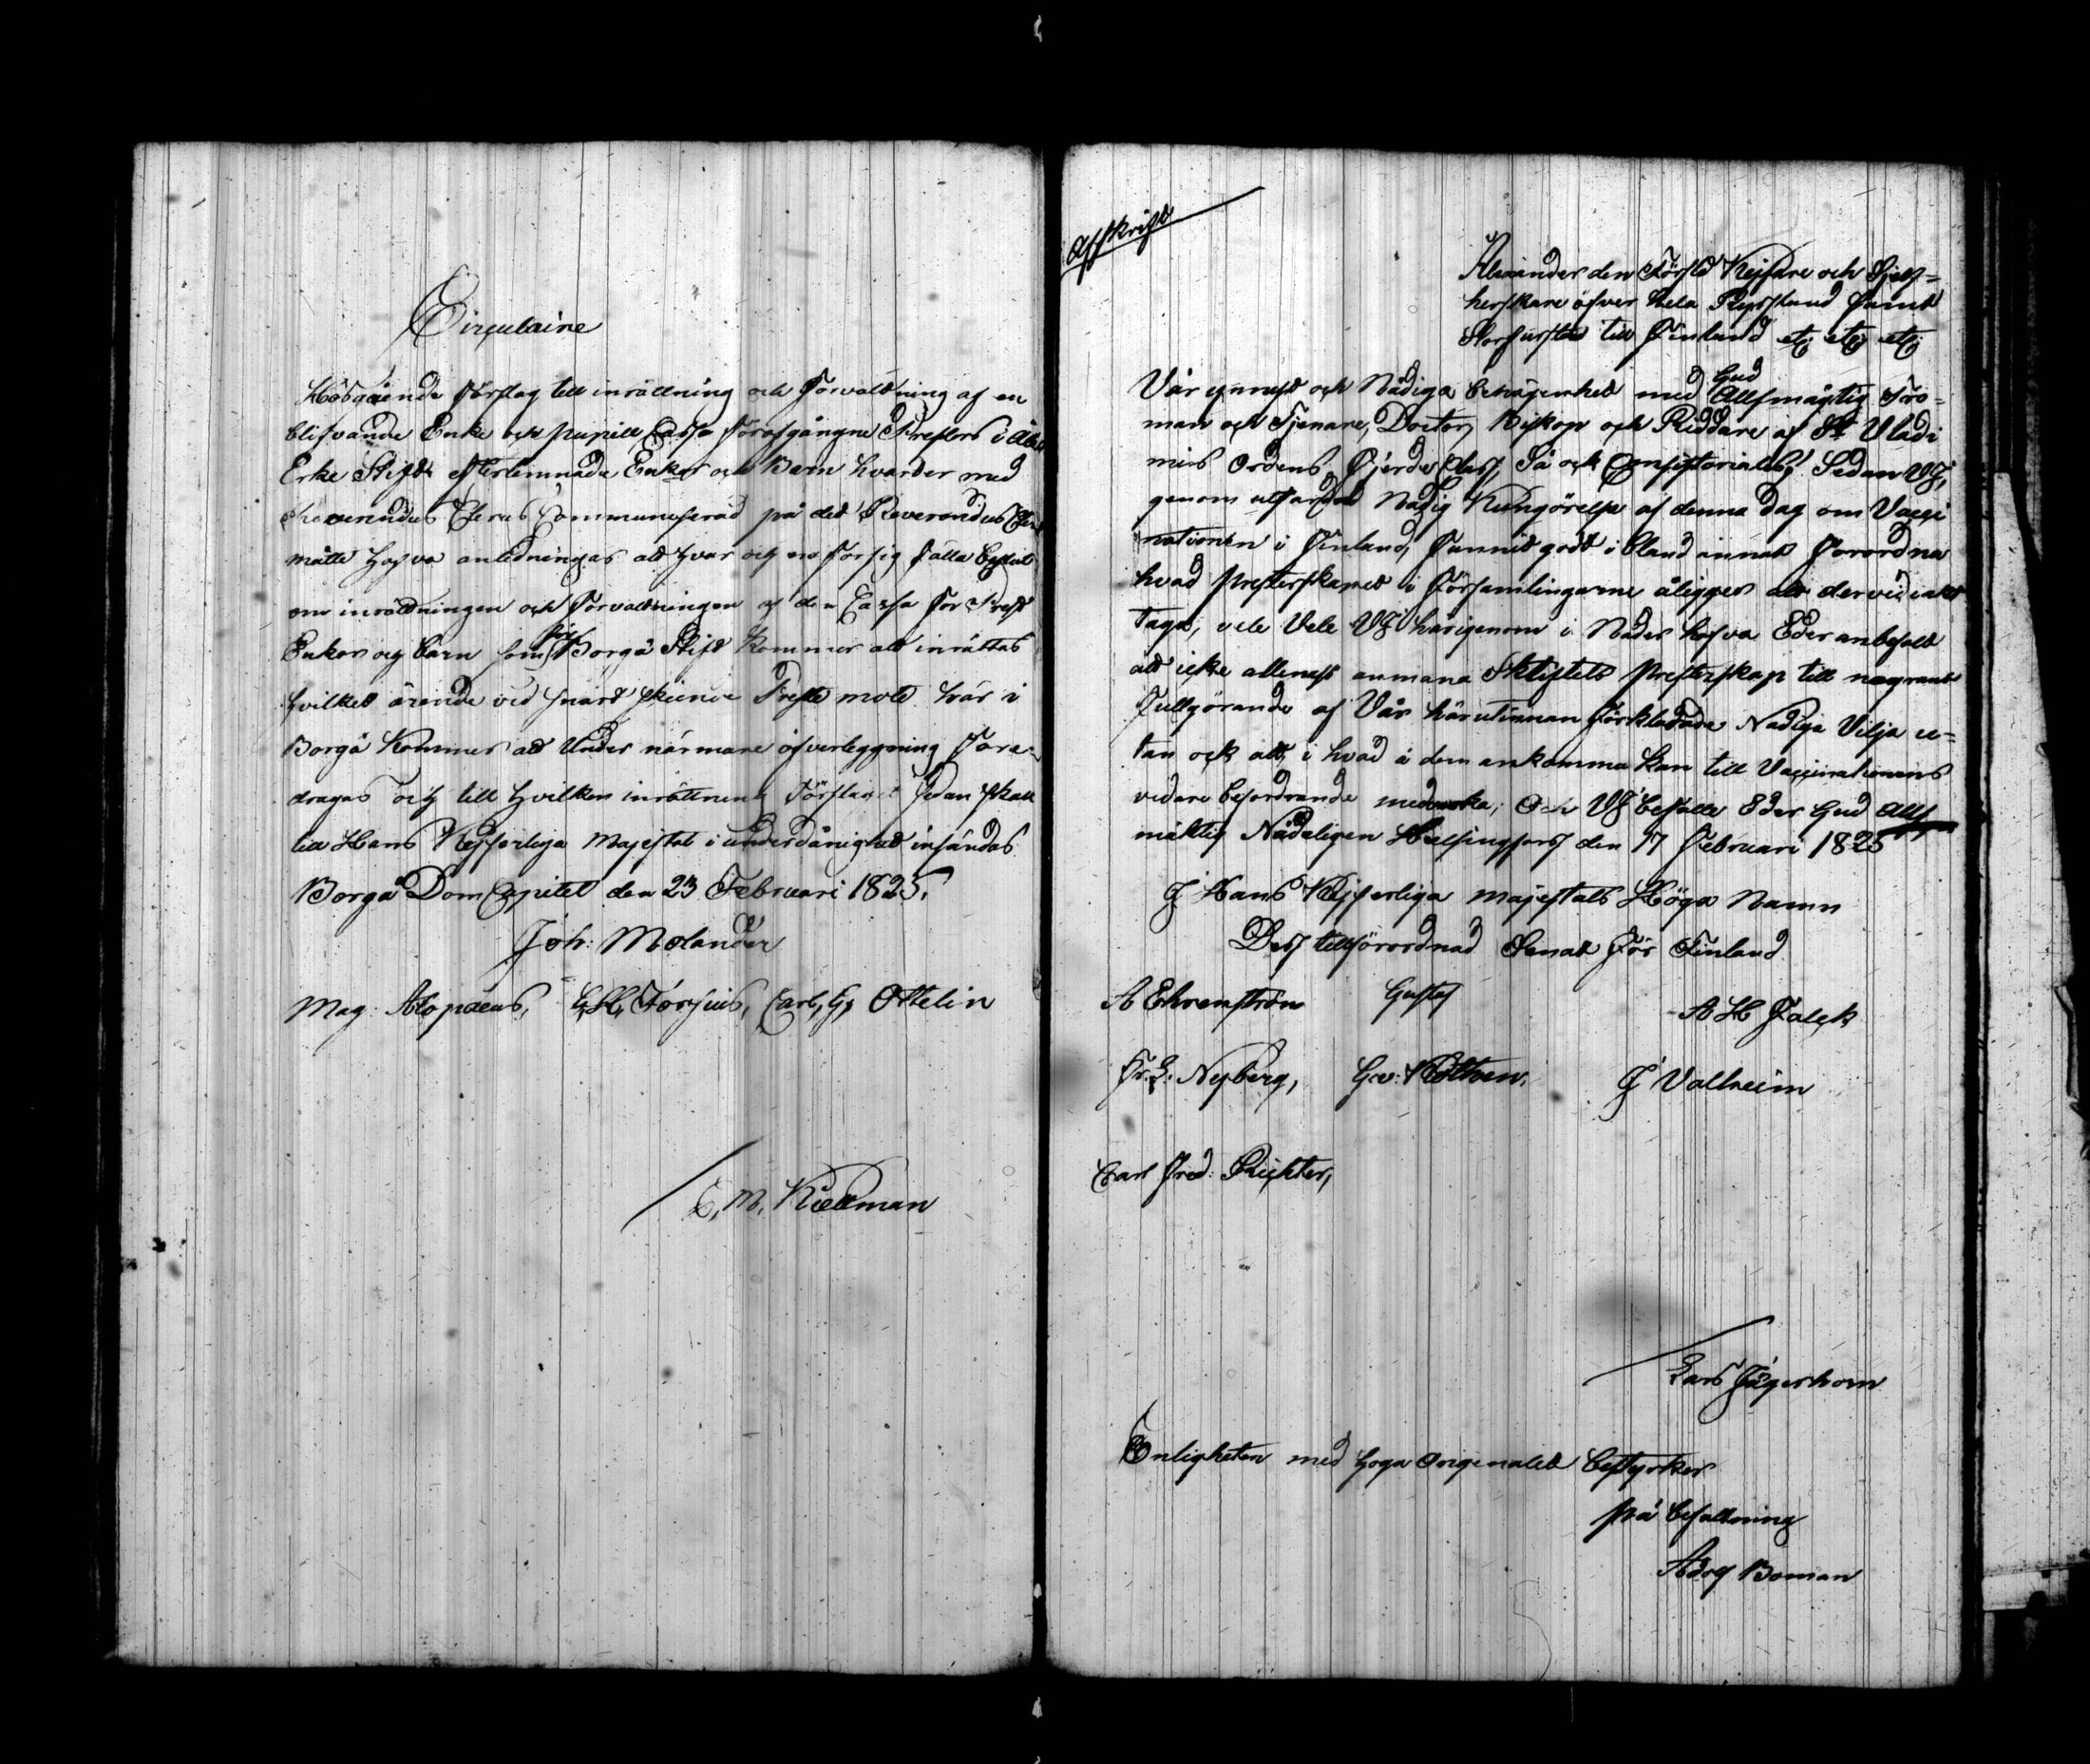 Circulaire
Hosgående Förslag till inrättning och Förvaltning af en
blifvande Enke och pupill Cassa Förafgångne Presters i Åbo
Erke Stift efterlemnade Enkor och Barn hvarder med
Reverendus Clerus Communiserad på det Reverendus Cler
måtte hafva anledningar att hvar och en för sig fälla
om inrättningen och Förvaltningen af den Cassa För Prest
Enkor och barn som för Borgå Stift kommer att inrättas
hvilket ärende vid snart skeende Preste mote här i
Borgå Kommer att Under närmare öfverleggning Före-
dragas och till hvilken inrättning Förslaget sedan skall
till Hans Kejserliga Majestät i underdånighet insändas.
Borgå DomCapitel den 23 Februari 1825.
Joh: Molander
Mag: Alopæus, G, H, Forsius, Carl, G, Ottelin
E, M, Kiellman
Affskrift
Alexander den Förste Kejsare och Sjelf=
herskare öfver hela Ryssland samt
Storfurste till Finland etc etc etc
Vår ynnest och Nådiga benägenhet med Gud Allsmäg­tig Tro=
man och Tjenare, Doctor, Biskop och Riddare af St Vladi
mirs Ordens Fjerde Class Så och Consistoriales! Sedan VJ,
genom utfärdad Nådig Kungörelse af denna dag om Vacci
nationen i Finland, Funnit godt i bland annat Förordna
hvad presterskapet i Församlingarne åligger att dervid iakt
taga; vele VJ härigenom i Nåder hafva Eder anbefalt
att icke allenast anmana Stiftets Presterskap till nogrant
Fullgörande af Vår härutinnan Förklarade Nådiga Vilja u=
tan ock att, i hvad å dem ankomma kan till Vaccinationens
vidare befordrande medverka; Och VJ befalle Eder Gud Alls
mäktig Nådeligen Helsingfors den 17 Februari 1825
J Hans Kejserliga Majestäts Höga Namn
Dess tillförordnad Senat För Finland
A Ehrenström Gustaf A H Falck
Fr: E: Nyberg, G:v: Kothen, J Valheim
Carl Fred: Richter,
Lars Jägerhorn
Enligheten med höga Originalet bestyrker
på befallning
Adolf Boman